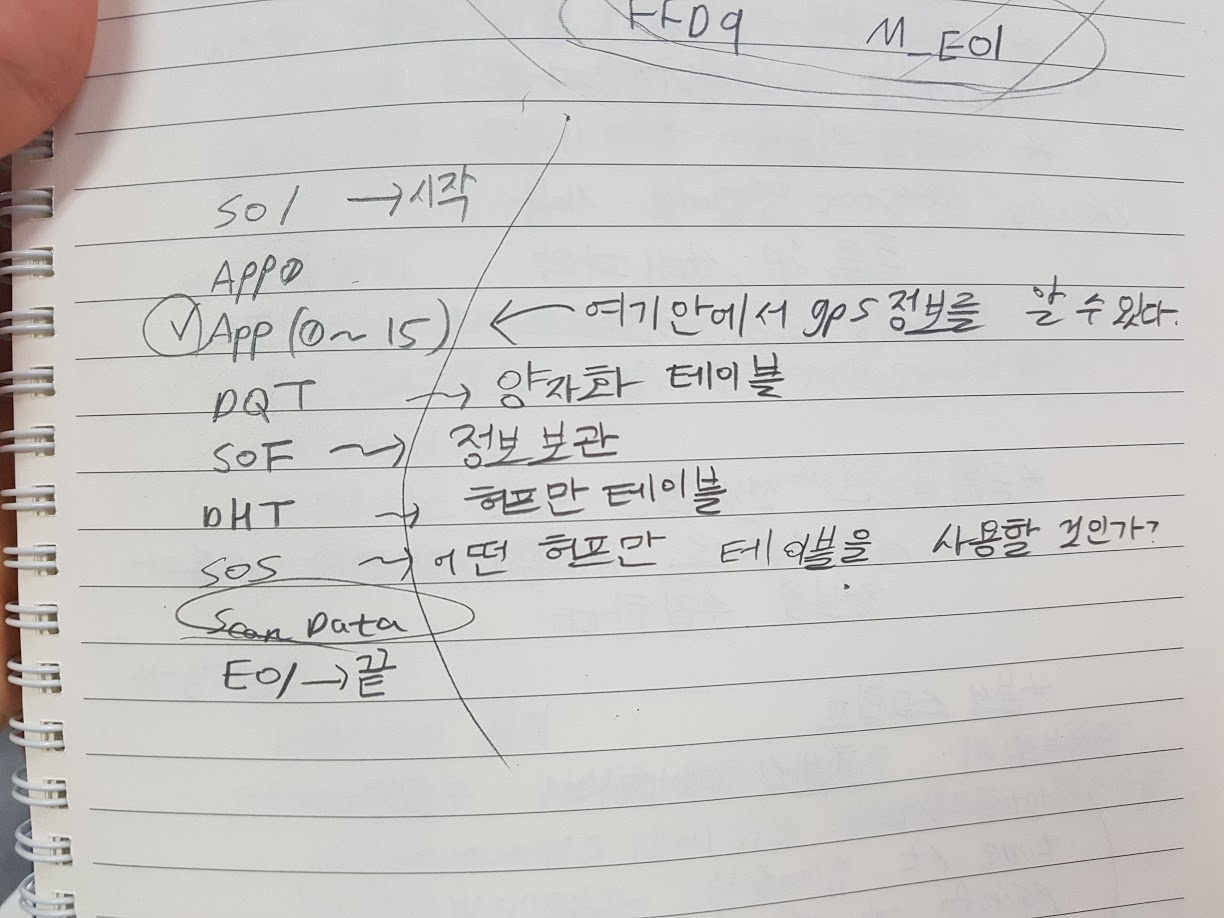 FFD9 M_EOI
SOI →시작
APP0
✓ App (0~15) ← 여기안에서 gps 정보를 알 수 있다.
DQT → 양자화 테이블
SOF → 정보보관
DHT → 허프만 테이블
SOS → 어떤 허프만 테이블을 사용할 것인가?
Scan Data
EOI → 끝